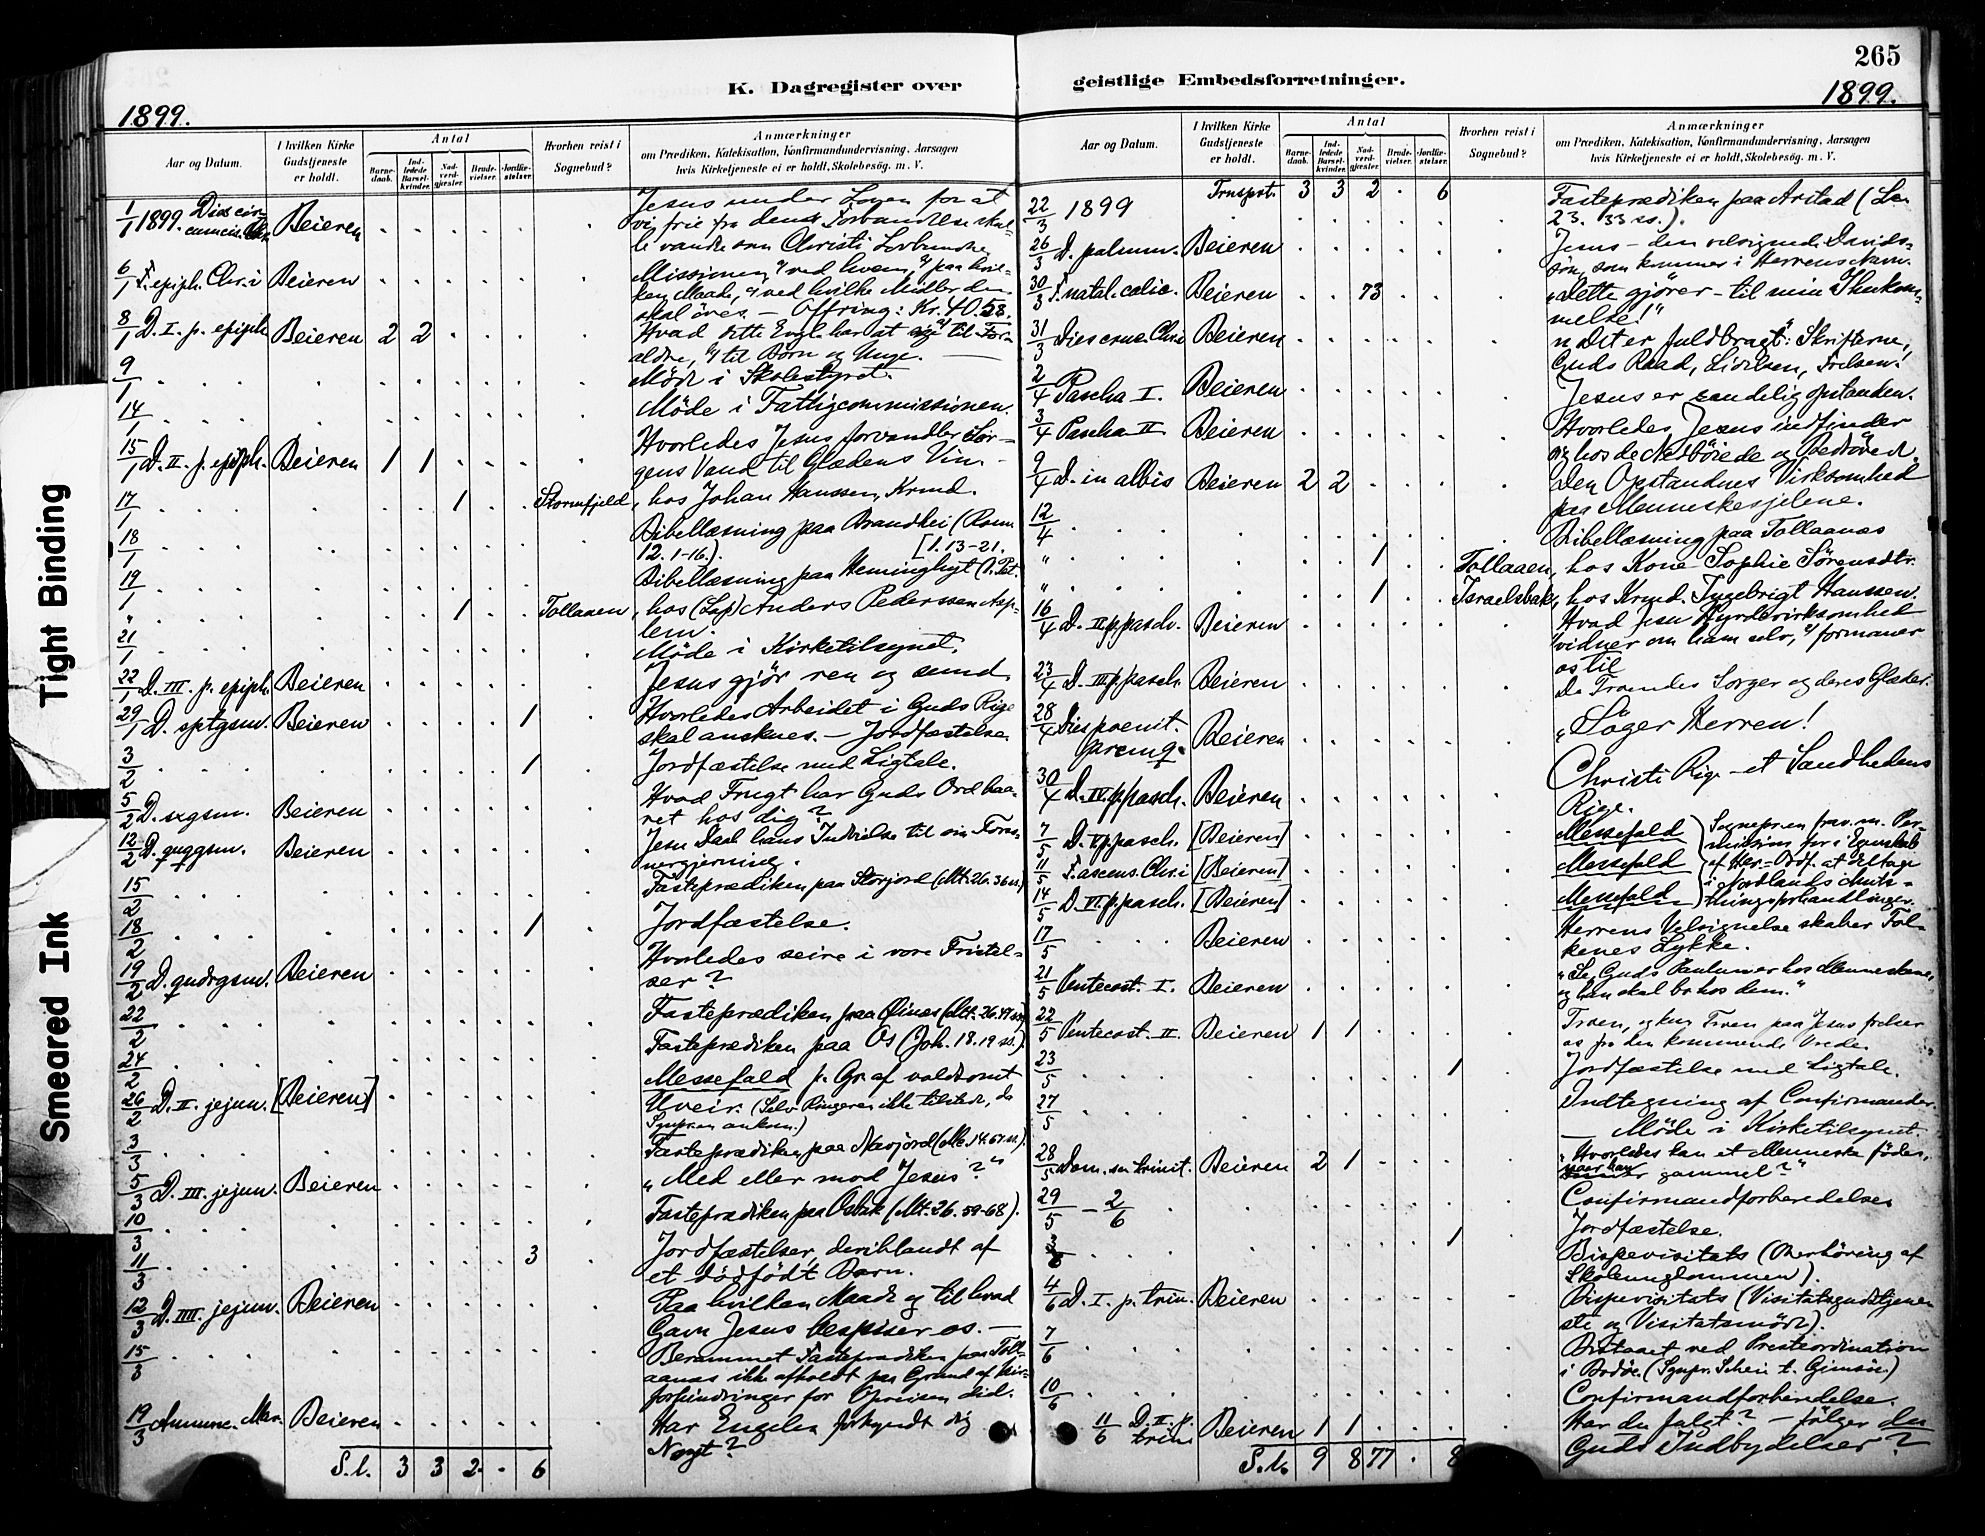 Tight Binding
Smeared Ink
K. Dagregister over
1899.
Aar og Datum.
I hvilken Kirke Gudstjeneste er holdt.
Antal
Barnedaab.
Indledede Barselkvinder.
Nadverdgjester.
Brudevielser.
Jordfæstelser.
Hvorhen reist i Sognebud?
Anmærkninger
om Prædiken, Katekisation, Konfirmandundervisning, Aarsagen
hvis Kirketjeneste ei er holdt, Skolebesøg. m. V.
Jesus under Loven for at
1/1 1899. Dies circumcis. Chr. Beieren vi, frie fra dens Forbandelse skul-
le vandre som Christi Lovbundne
6/1 F. epiph. Chr.i Beieren Missionen, ved hvem, paa hvil-
ken Maade, ved hvilke Midler den
skal øves. — Offring: Kr. 40.53.
8/1 D. I. p. epiph. Beieren 2 2 Hvad dette Evgl. har at sige til For-
ældre, til Børn og Unge. —
9/1 Møde i Skolestyret.
14/1 Møde i Fattigcommissionen.
15/1 D. II. p. epiph. Beieren 1 1 Hvorledes Jesus forvandler Sor-
gens Vand til Glædens Vin. —
17/1 1 Stormfjeld, hos Johan Hanssen, Krmd.
18/1 Bibellæsning paa Brandhei (Rom.
12. 1-16.) [1. 13-21.
19/1 Bibellæsning paa Heminghyt (1. Pet.
" 1 Tollaaen, hos (Lap) Anders Pederssen Asp-
lem.
21/1 Møde i Kirketilsynet.
22/1 D. III. p. epiph. Beieren Jesus gjør ren og sund.
29/1 D. sptgsm. Beieren 1 Hvorledes Arbeidet i Guds Rige
skal ansknes. — Jordfæstelse
3/2 1 Jordfæstelse med Ligtale.
5/2 D. sxgsm. Beieren Hvad Frugt har Guds Ord baa-
ret hos dig?
12/2 D. quqgsm. Beieren Jesu Daab hans Indvielse til sin Frelsergjerning.
15/2 Fasteprædiken paa Storjord (Mt. 26. 36 ss.)
18/2 1 Jordfæstelse.
19/2 D. qudrgsm. Beieren Hvorledes seire i vore Fristel-
ser?
22/2 Fasteprædiken paa Eines (Mt. 26. 47 ss.)
24/2 Fasteprædiken paa Os (Joh. 18. 19 ss.)
26/2 D. II. jejun. [Beieren] Messefald p. Gr. af voldsomt
Uveir. (Selv Ringeren ikke tilstede, da
Sognepr. ankom.)
3/3 Fasteprædiken paa Nævjord (Mc. 14. 67 ss.)
5/3 D. III. jejun. Beieren "Med eller mod Jesus?"
10/3 Fasteprædiken paa Osbak (Mt. 26. 59-68).
11/3 3 Jordfæstelser, deriblandt af
et dødfødt Barn.
12/3 D. IIII. jejun. Beieren Paa hvilken Maade og til hvad
Gavn Jesus bespiser os. —
15/3 Berammet Fasteprædiken paa Toll-
aanes ikke afholdt paa Grund af
forhindringer for Opreisen did.
19/3 Annunc. Mar. Beieren Har Engelen forkyndt dig
Noget?
S. l. 3 3 2 · 6
265
geistlige Embedsforretninger.
1899.
Aar og Datum.
I hvilken Kirke Gudstjeneste er holdt.
Antal
Barnedaab.
Indledede Barselkvinder.
Nadverdgjester.
Brudevielser.
Jordfæstelser.
Hvorhen reist i Sognebud?
Anmærkninger
om Prædiken, Katekisation, Konfirmandundervisning, Aarsagen
hvis Kirketjeneste ei er holdt, Skolebesøg. m. V.
Trnsport. 3 3 2 · 6
22/3 1899 Fasteprædiken paa Arstad (Lc.
23. 33 ss.).
26/3 D. palmar. Beieren Jesus — den velsignede Davids-
søn, som kommer i Herrens Navn.
30/3 F. natal. calic. Beieren 73 "Dette gjører — til min Ihukom-
melse!"
31/3 Dies cruc. Chr.i Beieren "Det er fuldbragt": Skrifterne,
Guds Raad, Lidelsen, Frelsen.
2/4 Pascha I. Beieren Jesus er sandelig opstanden.
3/4 Pascha II Beieren Hvorledes Jesus indfinder
sig hos de Nedbøiede og Bedrøved.
9/4 D. in albis Beieren 2 2 Den Opstandnes Virksomhed
paa Menneskesjelene.
12/4 Bibellæsning paa Tollaanes
" 1 Tollaaen, hos Kone Sophie Sörensdtr.
" 1 Israelsbak, hos Krmd. Ingebrigt Hanssen.
16/4 D. II p. pasch. Beieren Hvad Jesu Hyrdevirksomhed
vidner om ham selv, formaner
os til
23/4 D. III p. pasch. Beieren De Troendes Sorger og deres Glæder.
28/4 Dies poenit. Beieren "Søger Herren!
30/4 D. IV. p. pasch. Beieren Christi Rige — et Sandhedens
Rige.
7/5 D. V p. pasch. [Beieren] Messefald
11/5 F. ascens. Chr.i [Beieren] Messefald
14/5 D. VI. p. pasch. [Beieren] Messefald
Sognepr.en frav. m. Per-
mission for i Egenskab
af Her-Ordf. at deltage
i Nordlands Amts-
thingsforhandlinger.
17/5 Beieren Herrens Velsignelse skaber Fol-
kenes Lykke.
21/5 Pentecost. I. Beieren "Se, Guds Paulun er hos Menneskene,
og han skal bo hos dem."
22/5 Pentecost. II. Beieren 1 1 Troen, og kun Troen paa Jesus frelser
os fra den kommende Vrede.
23/5 1 Jordfæstelse med Ligtale.
27/5 Indtegning af Confirmander.
— Møde i Kirketilsynet.
28/5 Dom. ss. trinit. Beieren 2 1 "Hvorledes kan et Menneske fødes,
naar han er gammel?"
29/5 – 2/6 Confirmandforberedelse
3/6 1 Jordfæstelse.
Bispevisitats (Overhöring af
Skoleungdommen).
4/6 D. I. p. trin. Beieren Bispevisitats (Visitatsgudstjene-
ste og Visitatsmöde).
7/6 Bistaaet ved Presteordination
i Bodöe. (Sognepr. Schei t. Gimsöe.)
10/6 Confirmandforberedelse.
11/6 D. II. p. trin. Beieren 1 1 Har du fulgt? — følger du
Guds Indbydelser?
S. l. 9 8 77 · 8